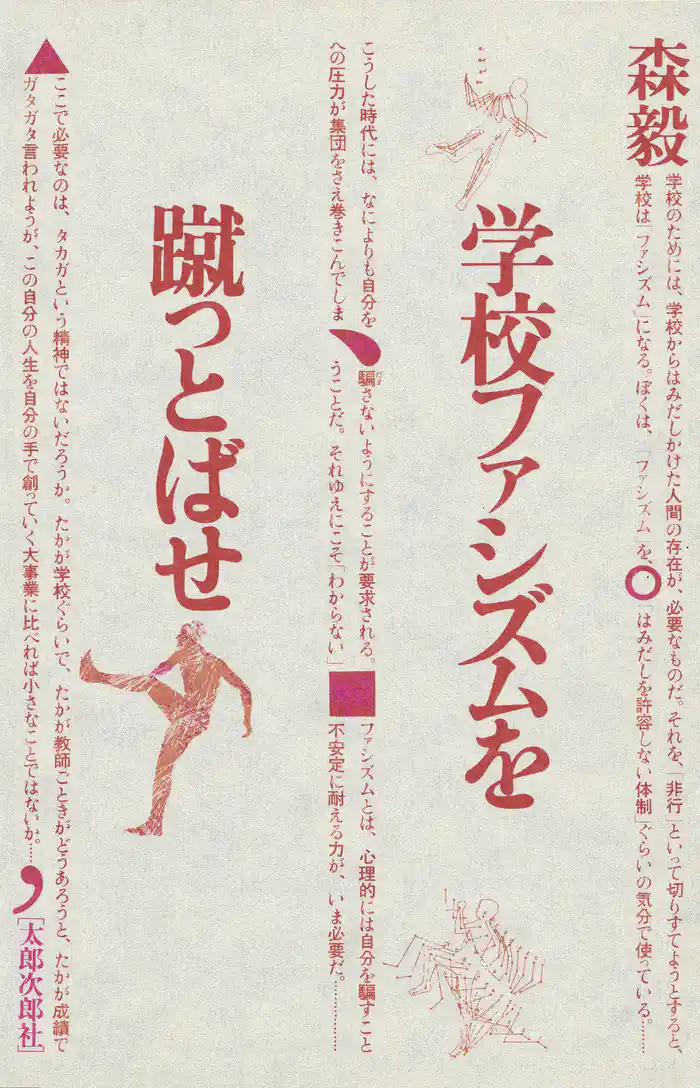 森毅
学校のためには、学校からはみだしかけた人間の存在が、必要なものだ。それを、「非行」といって切りすてようとすると、
学校は「ファシズム」になる。ぼくは、「ファシズム」を、「はみだしを許容しない体制」ぐらいの気分で使っている。………
学校ファシズムを
こうした時代には、なによりも自分を騙さないようにすることが要求される。ファシズムとは、心理的には自分を騙すこと
だま
への圧力が集団をさえ巻きこんでしまうことだ。それゆえにこそ「わからない」不安定に耐える力が、いま必要だ。…………
蹴っとばせ
ここで必要なのは、タカガという精神ではないだろうか。たかが学校ぐらいで、たかが教師ごときがどうあろうと、たかが成績で
ガタガタ言われようが、この自分の人生を自分の手で創っていく大事業に比べれば小さなことではないか。……
[太郎次郎社]